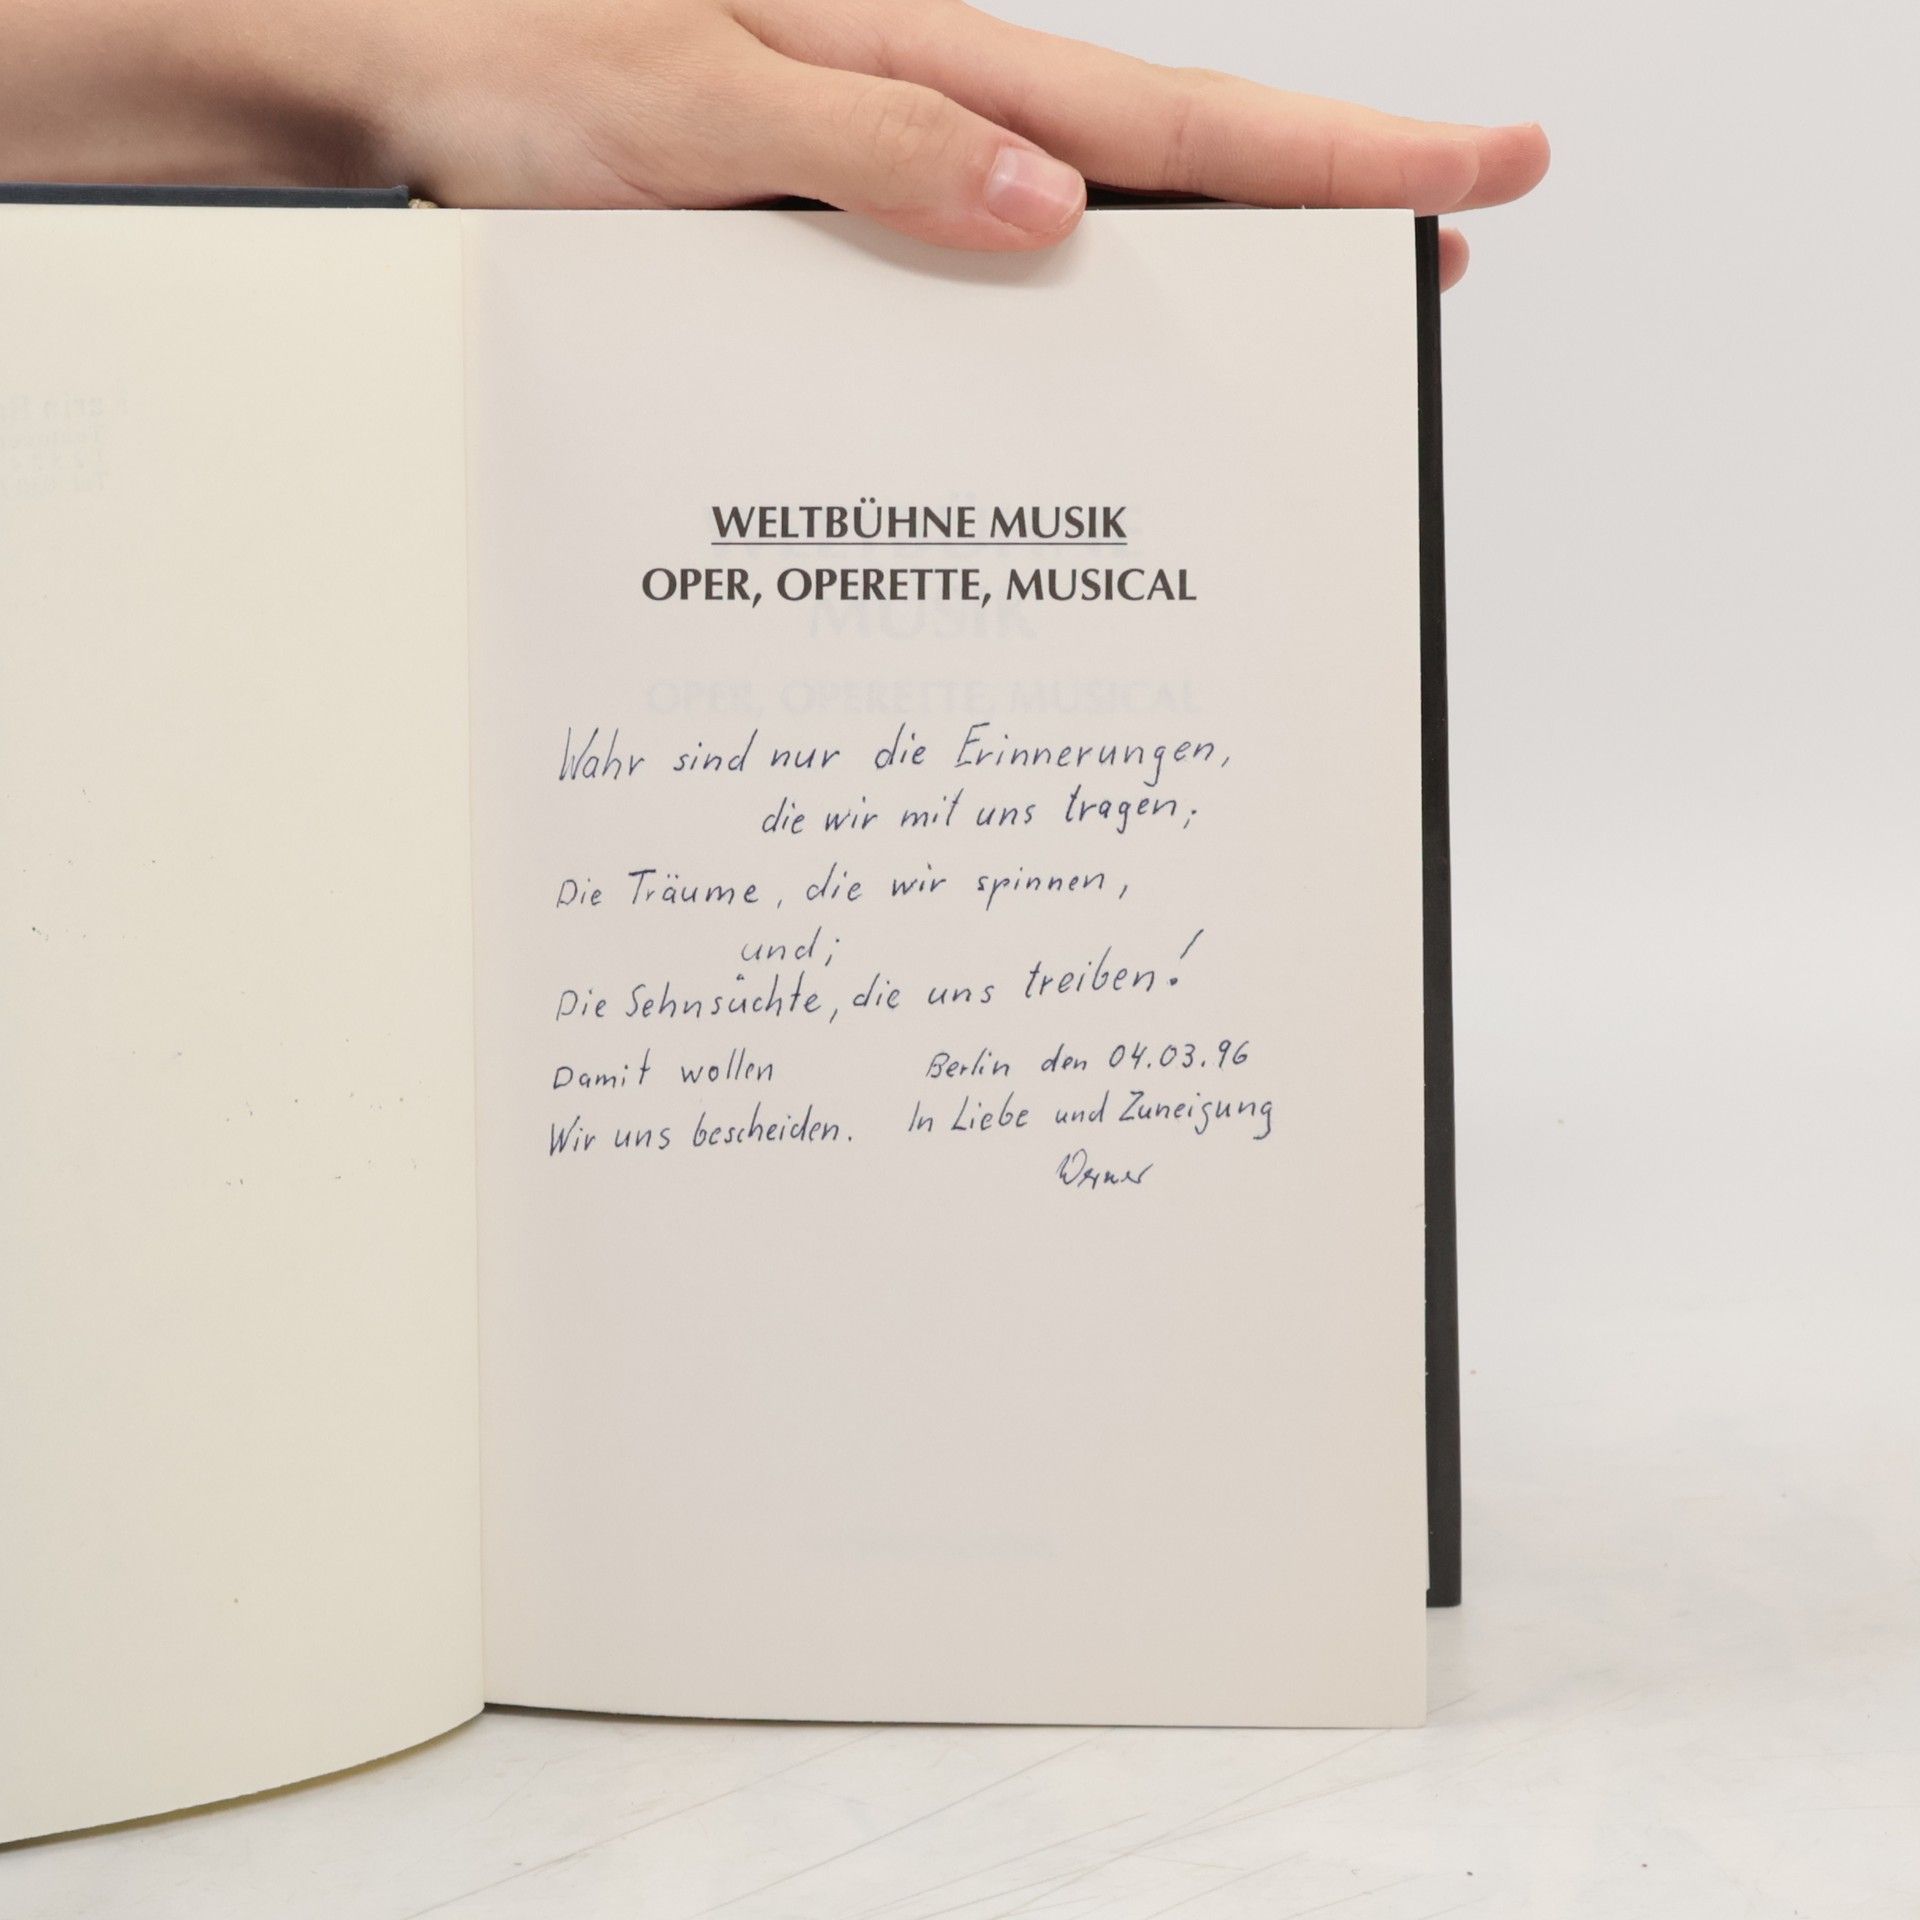 WELTBÜHNE MUSIK
OPER, OPERETTE, MUSICAL
MUSIK
OPER, OPERETTE, MUSICAL
Wahr sind nur die Erinnerungen,
die wir mit uns tragen;
Die Träume, die wir spinnen,
und;
Die Sehnsüchte, die uns treiben!
Damit wollen
Wir uns bescheiden.
Berlin den 04.03.96
In Liebe und Zuneigung
Werner